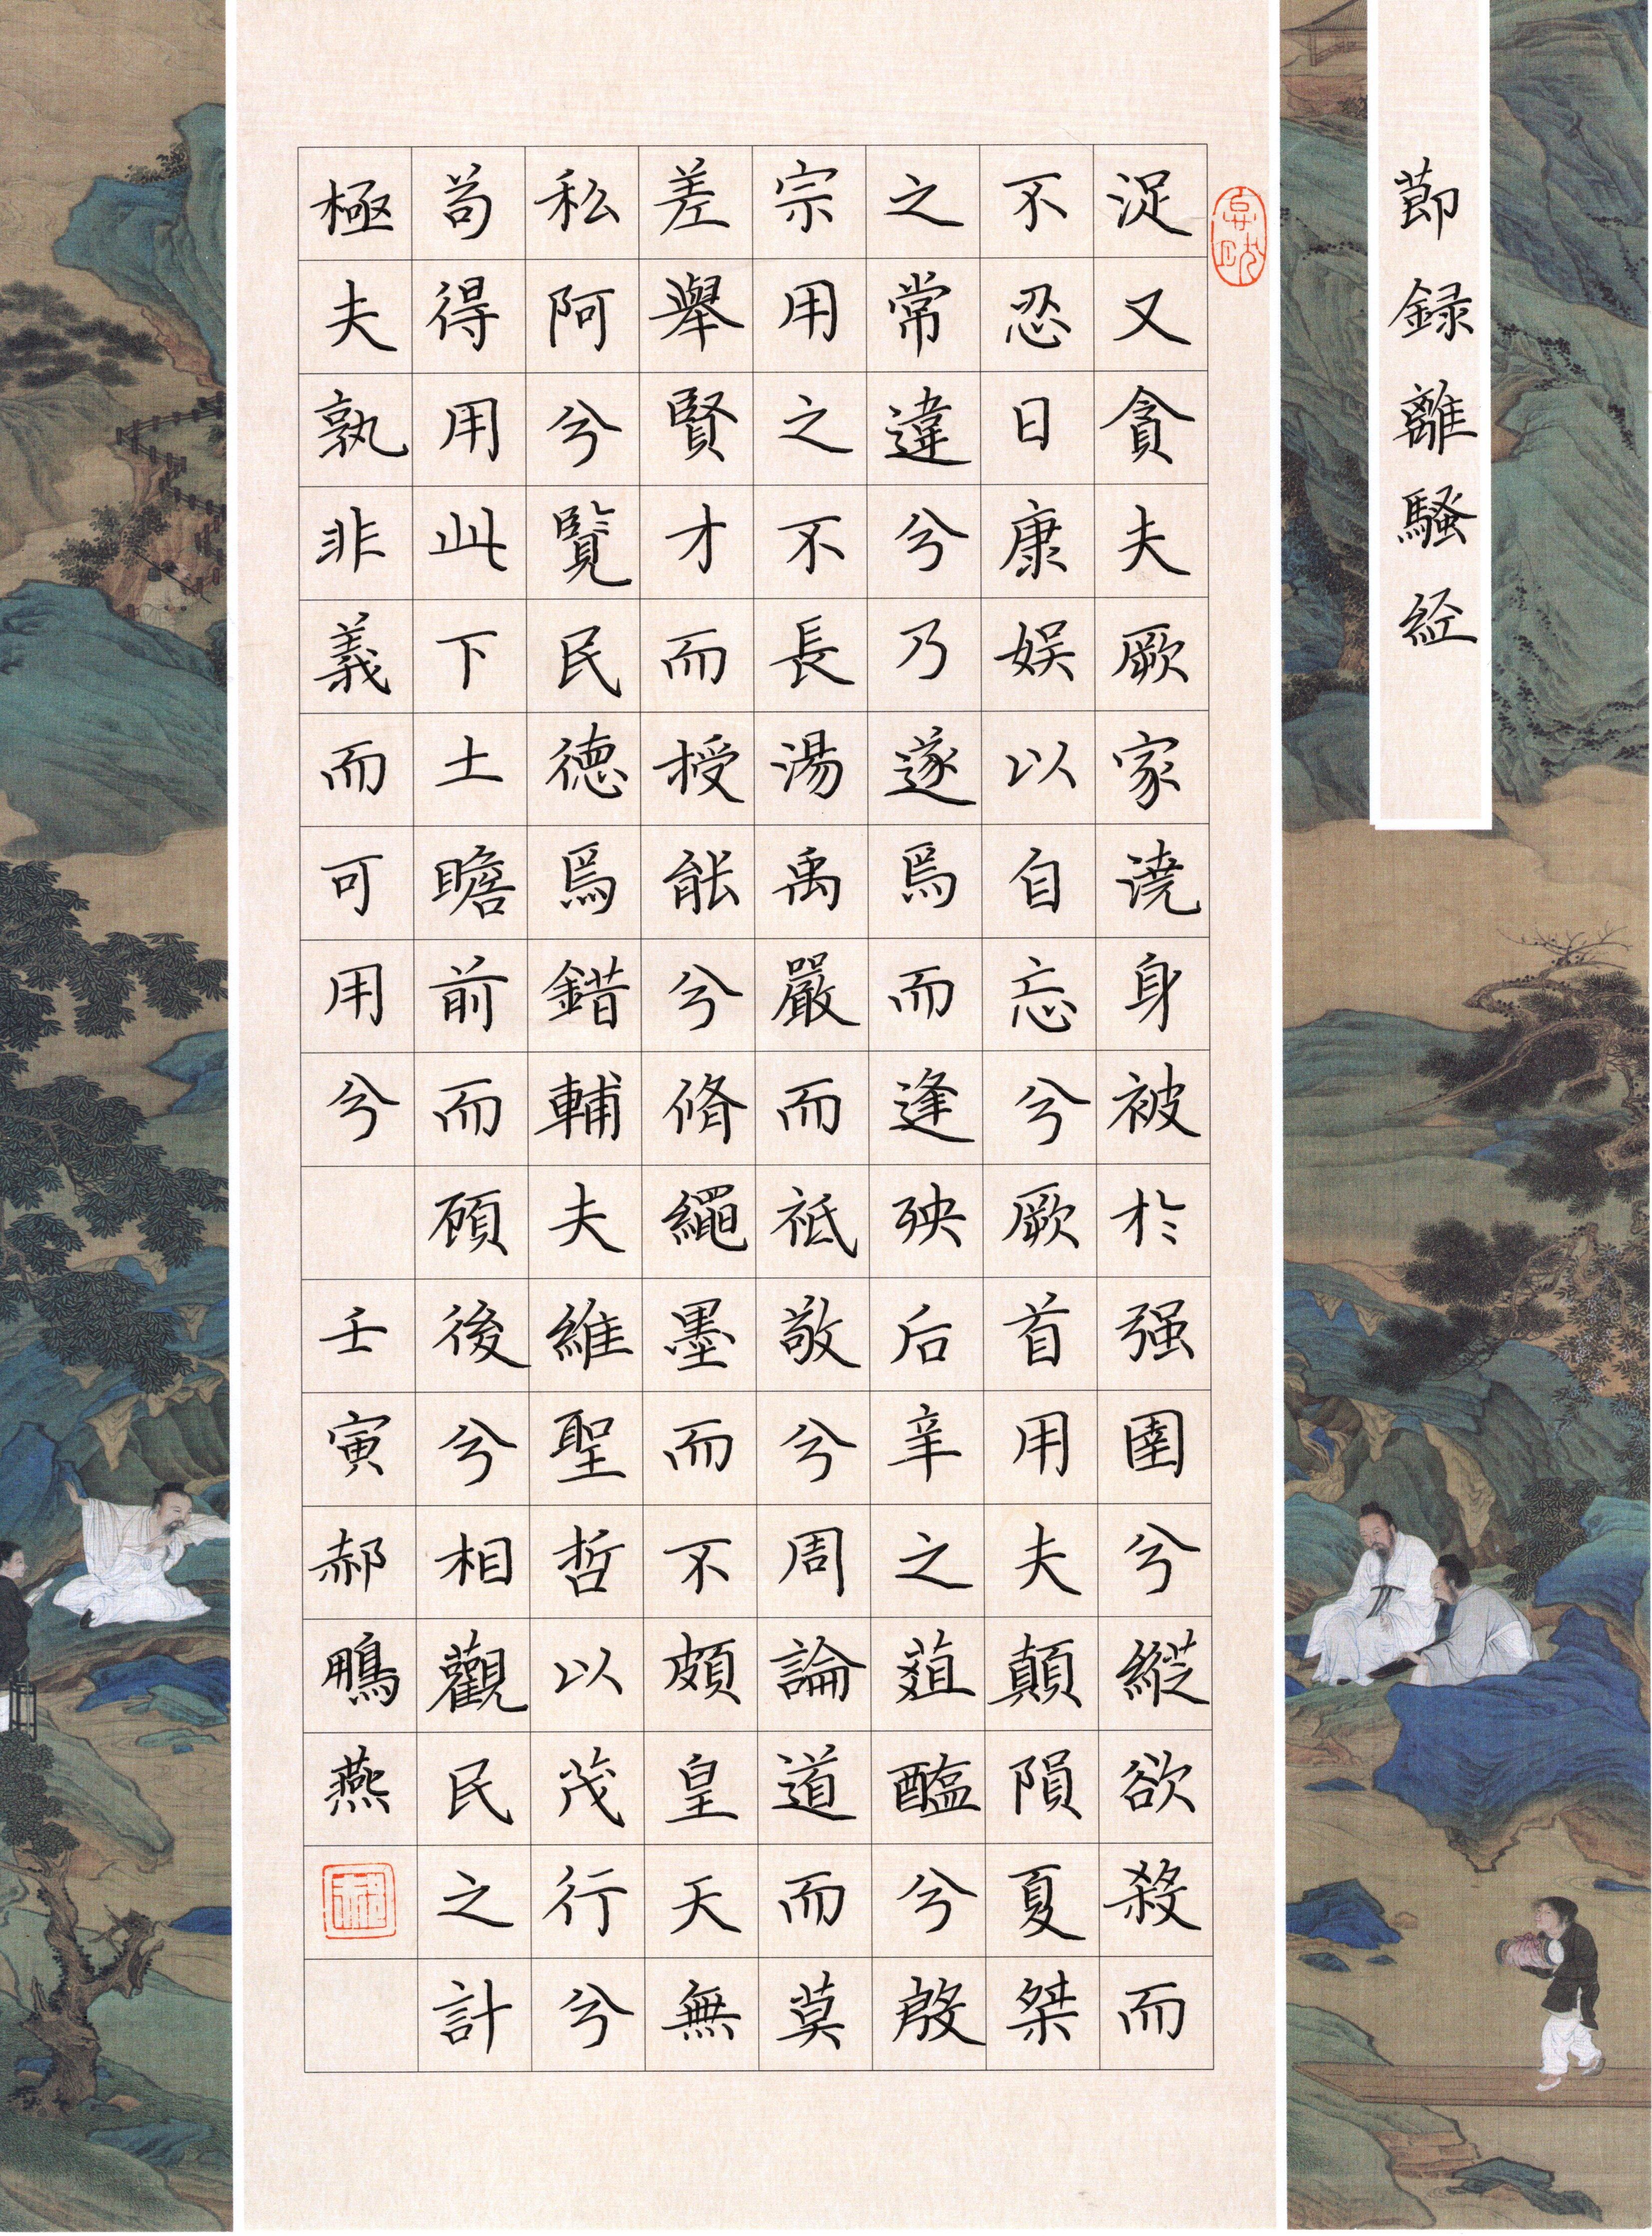 節録離騷经
浞又貪夫厥家澆身被於强圉兮縱欲殺而
不忍日康娱以自忘兮厥首用夫顛隕夏桀
之常違兮乃遂焉而逢殃后辛之菹醢兮殷
宗用之不長湯禹嚴而祗敬兮周論道而莫
差舉賢才而授能兮脩繩墨而不頗皇天無
私阿兮覽民德焉錯輔夫維聖哲以茂行兮
苟得用此下土瞻前而顧後兮相觀民之計
極夫孰非義而可用兮 壬寅郝鴨燕